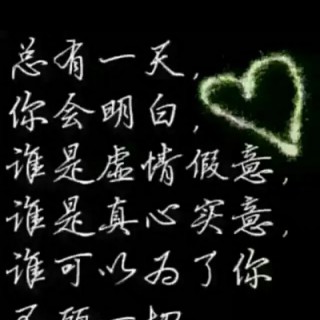 总有一天，
你会明白，
谁是虚情假意，
谁是真心实意，
谁可以为了你